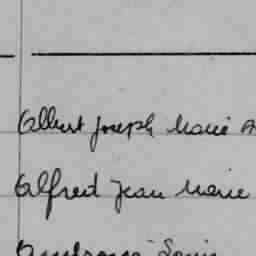 Albert Joseph Marie A
Alfred Jean Marie
Louis